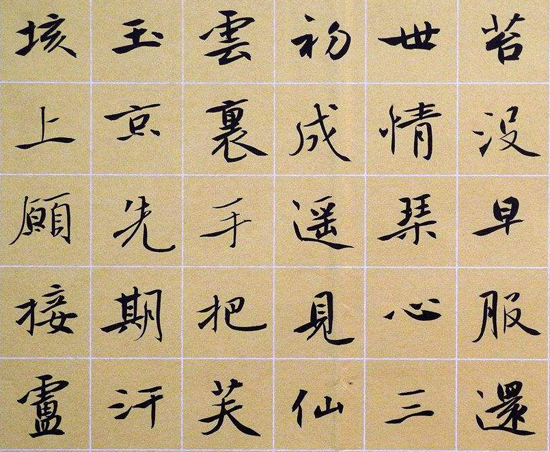 苔没早服還
世情琴心三
初成遥見仙
雲裏手把芙
玉京先期汗
垓上願接盧